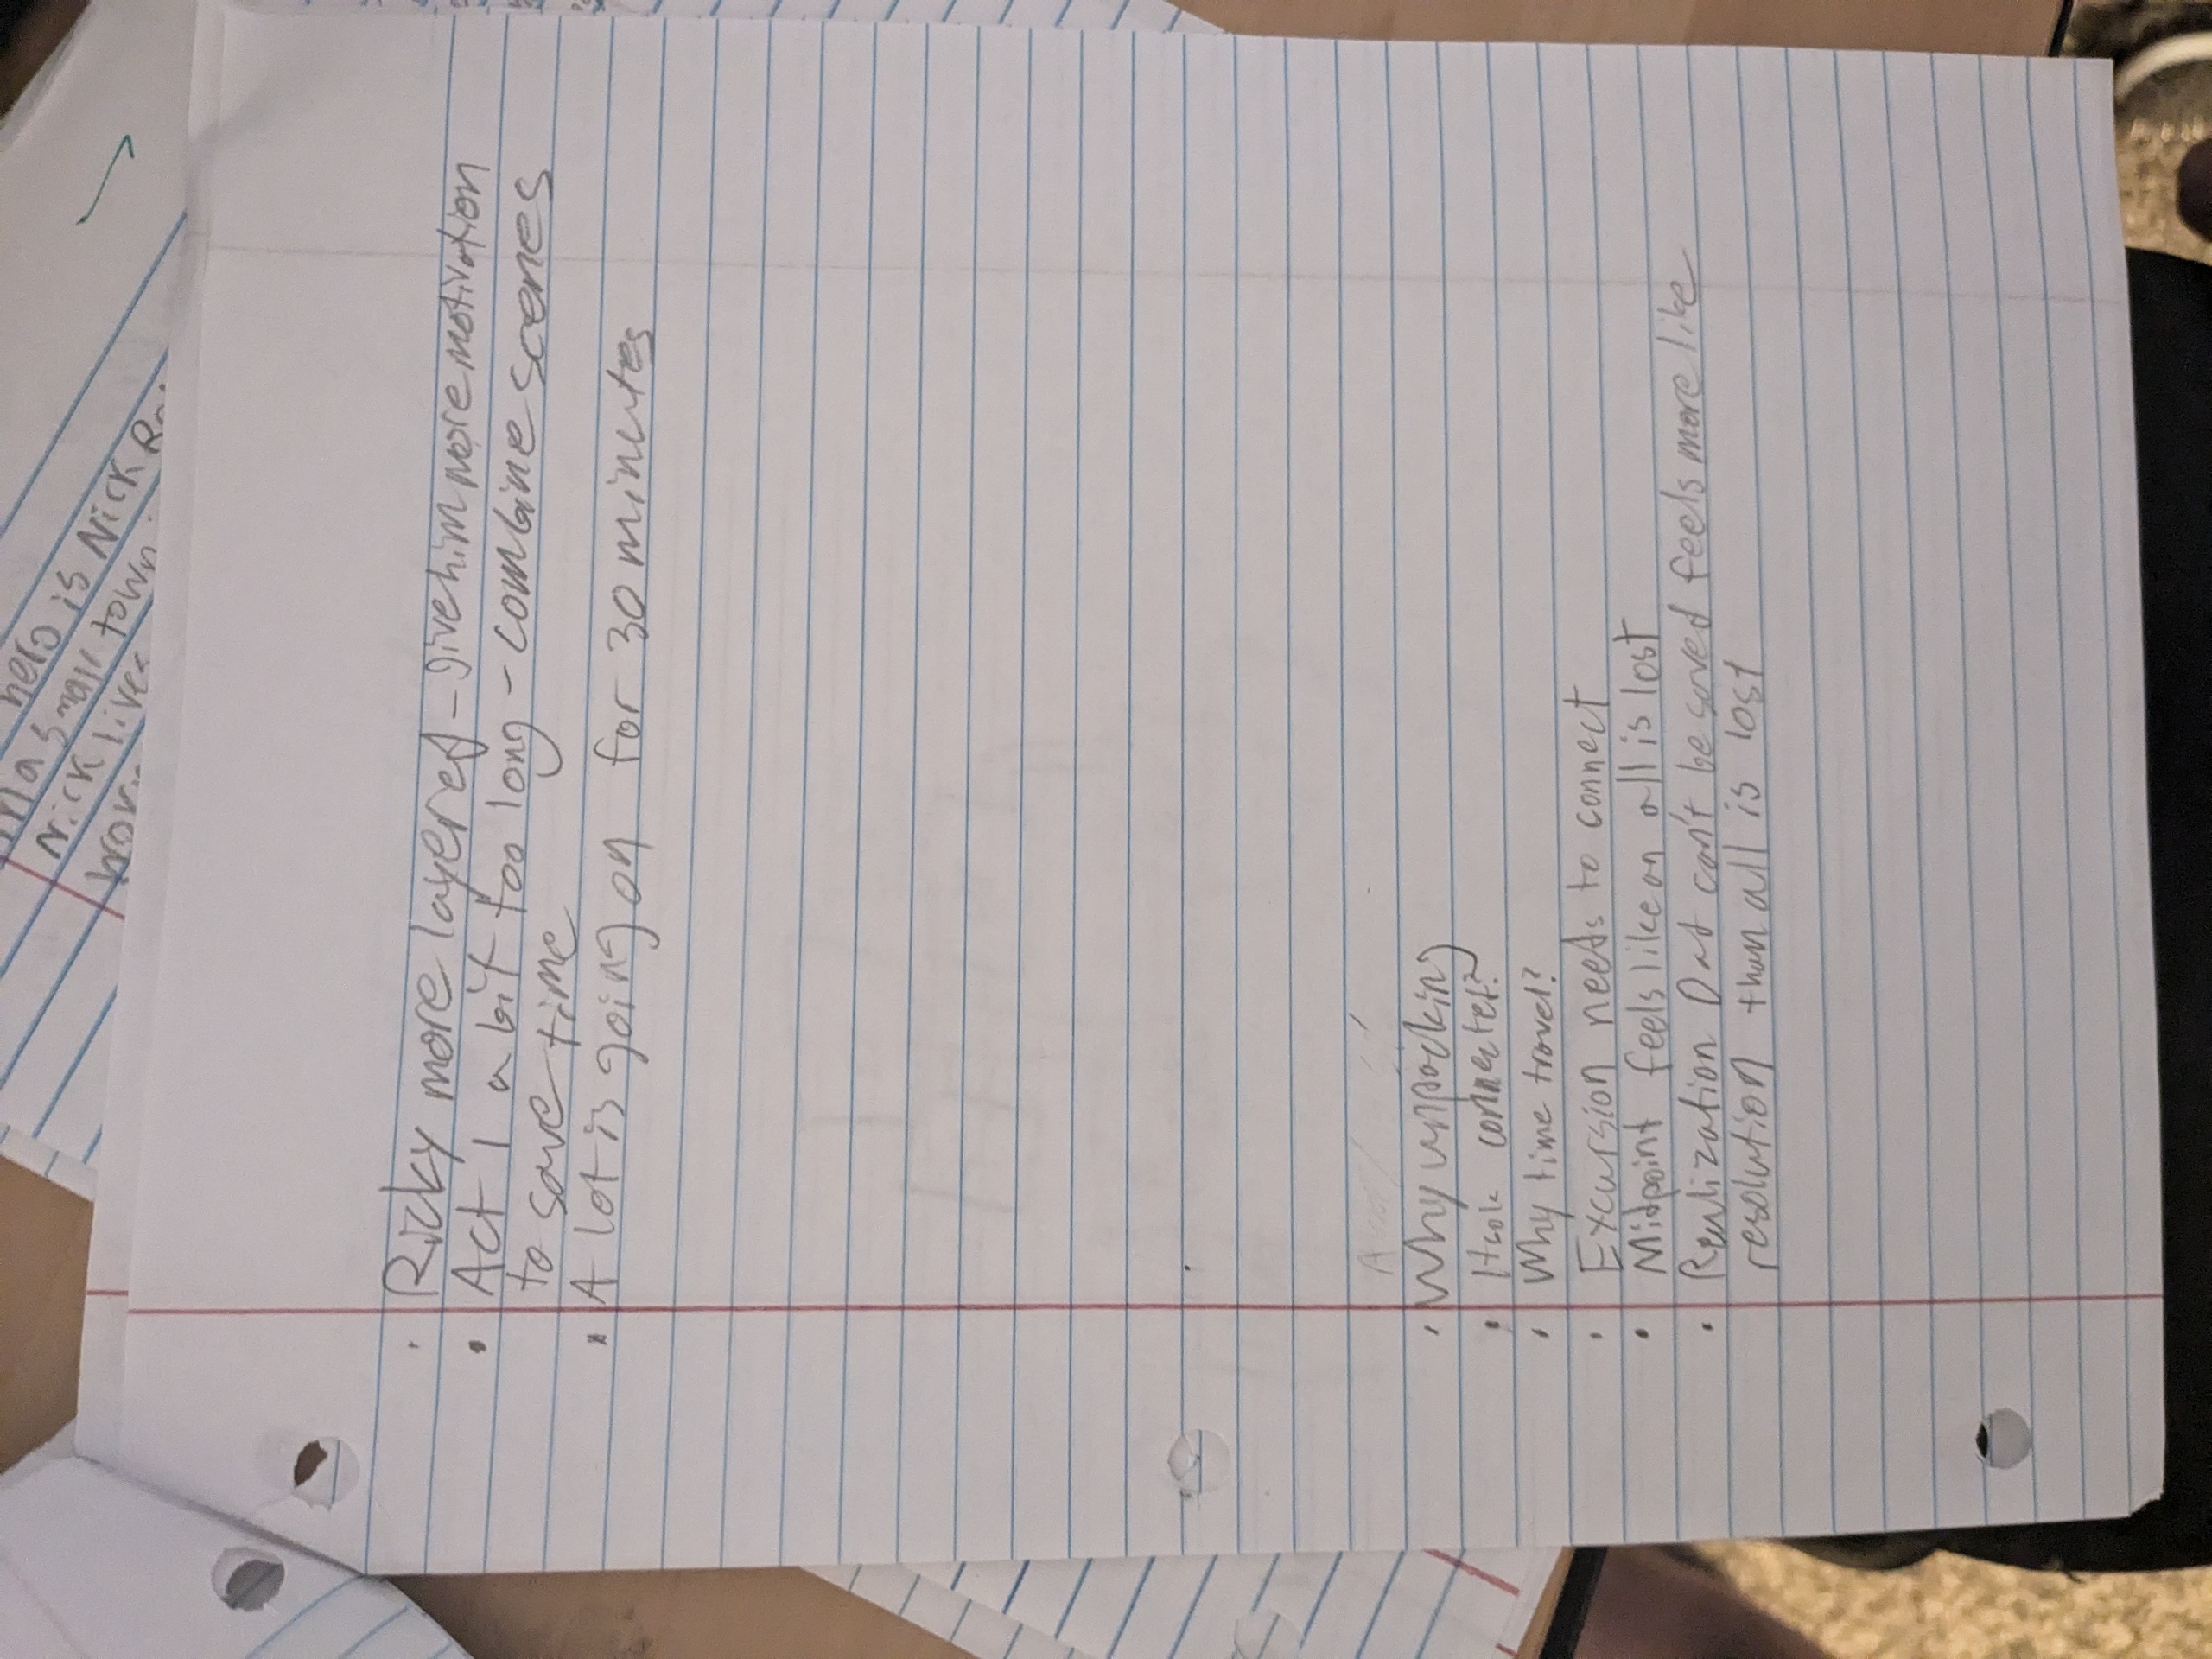 hero is Nick
in a small town
Nick lives
· Ricky more layered - give him more motivation
• Act 1 a bit too long - combine scenes
to save time
• A lot is going on for 30 minutes
• Why unpacking
• How connected?
• Why time travel?
• Excursion needs to connect
• Midpoint feels like an all is lost
• Realization Dad can't be saved feels more like
resolution than all is lost